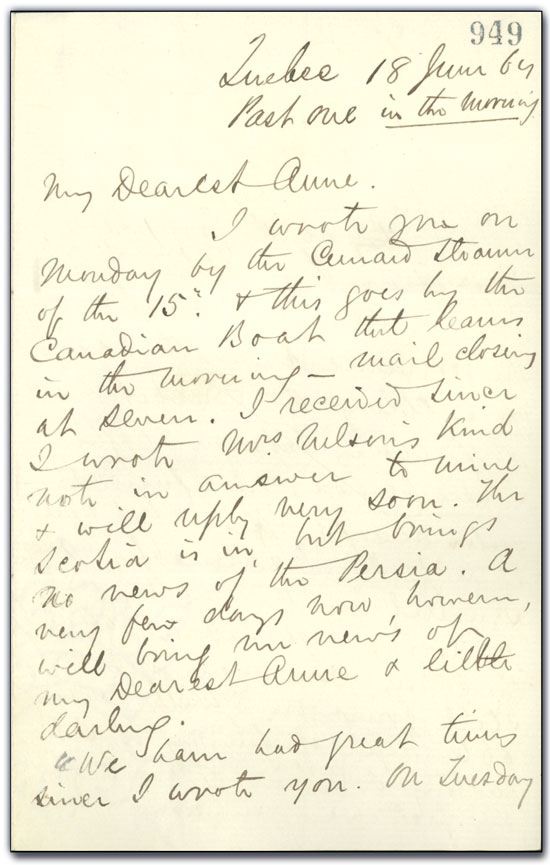 949
Quebec 18 June 64
Past one in the morning
My Dearest Anne.
I wrote you on
Monday by the Cunard Steamer
of the 15th. & this goes by the
Canadian Boat that leaves
in the morning - mail closing
at seven. I received since
I wrote Mrs Nelson's kind
note in answer to mine
& will reply very soon. The
Scotia is in, but brings
no news of the Persia. A
very few days now, however,
will bring me news of
my Dearest Anne & little
darling.
"We have had great times
since I wrote you. On Tuesday